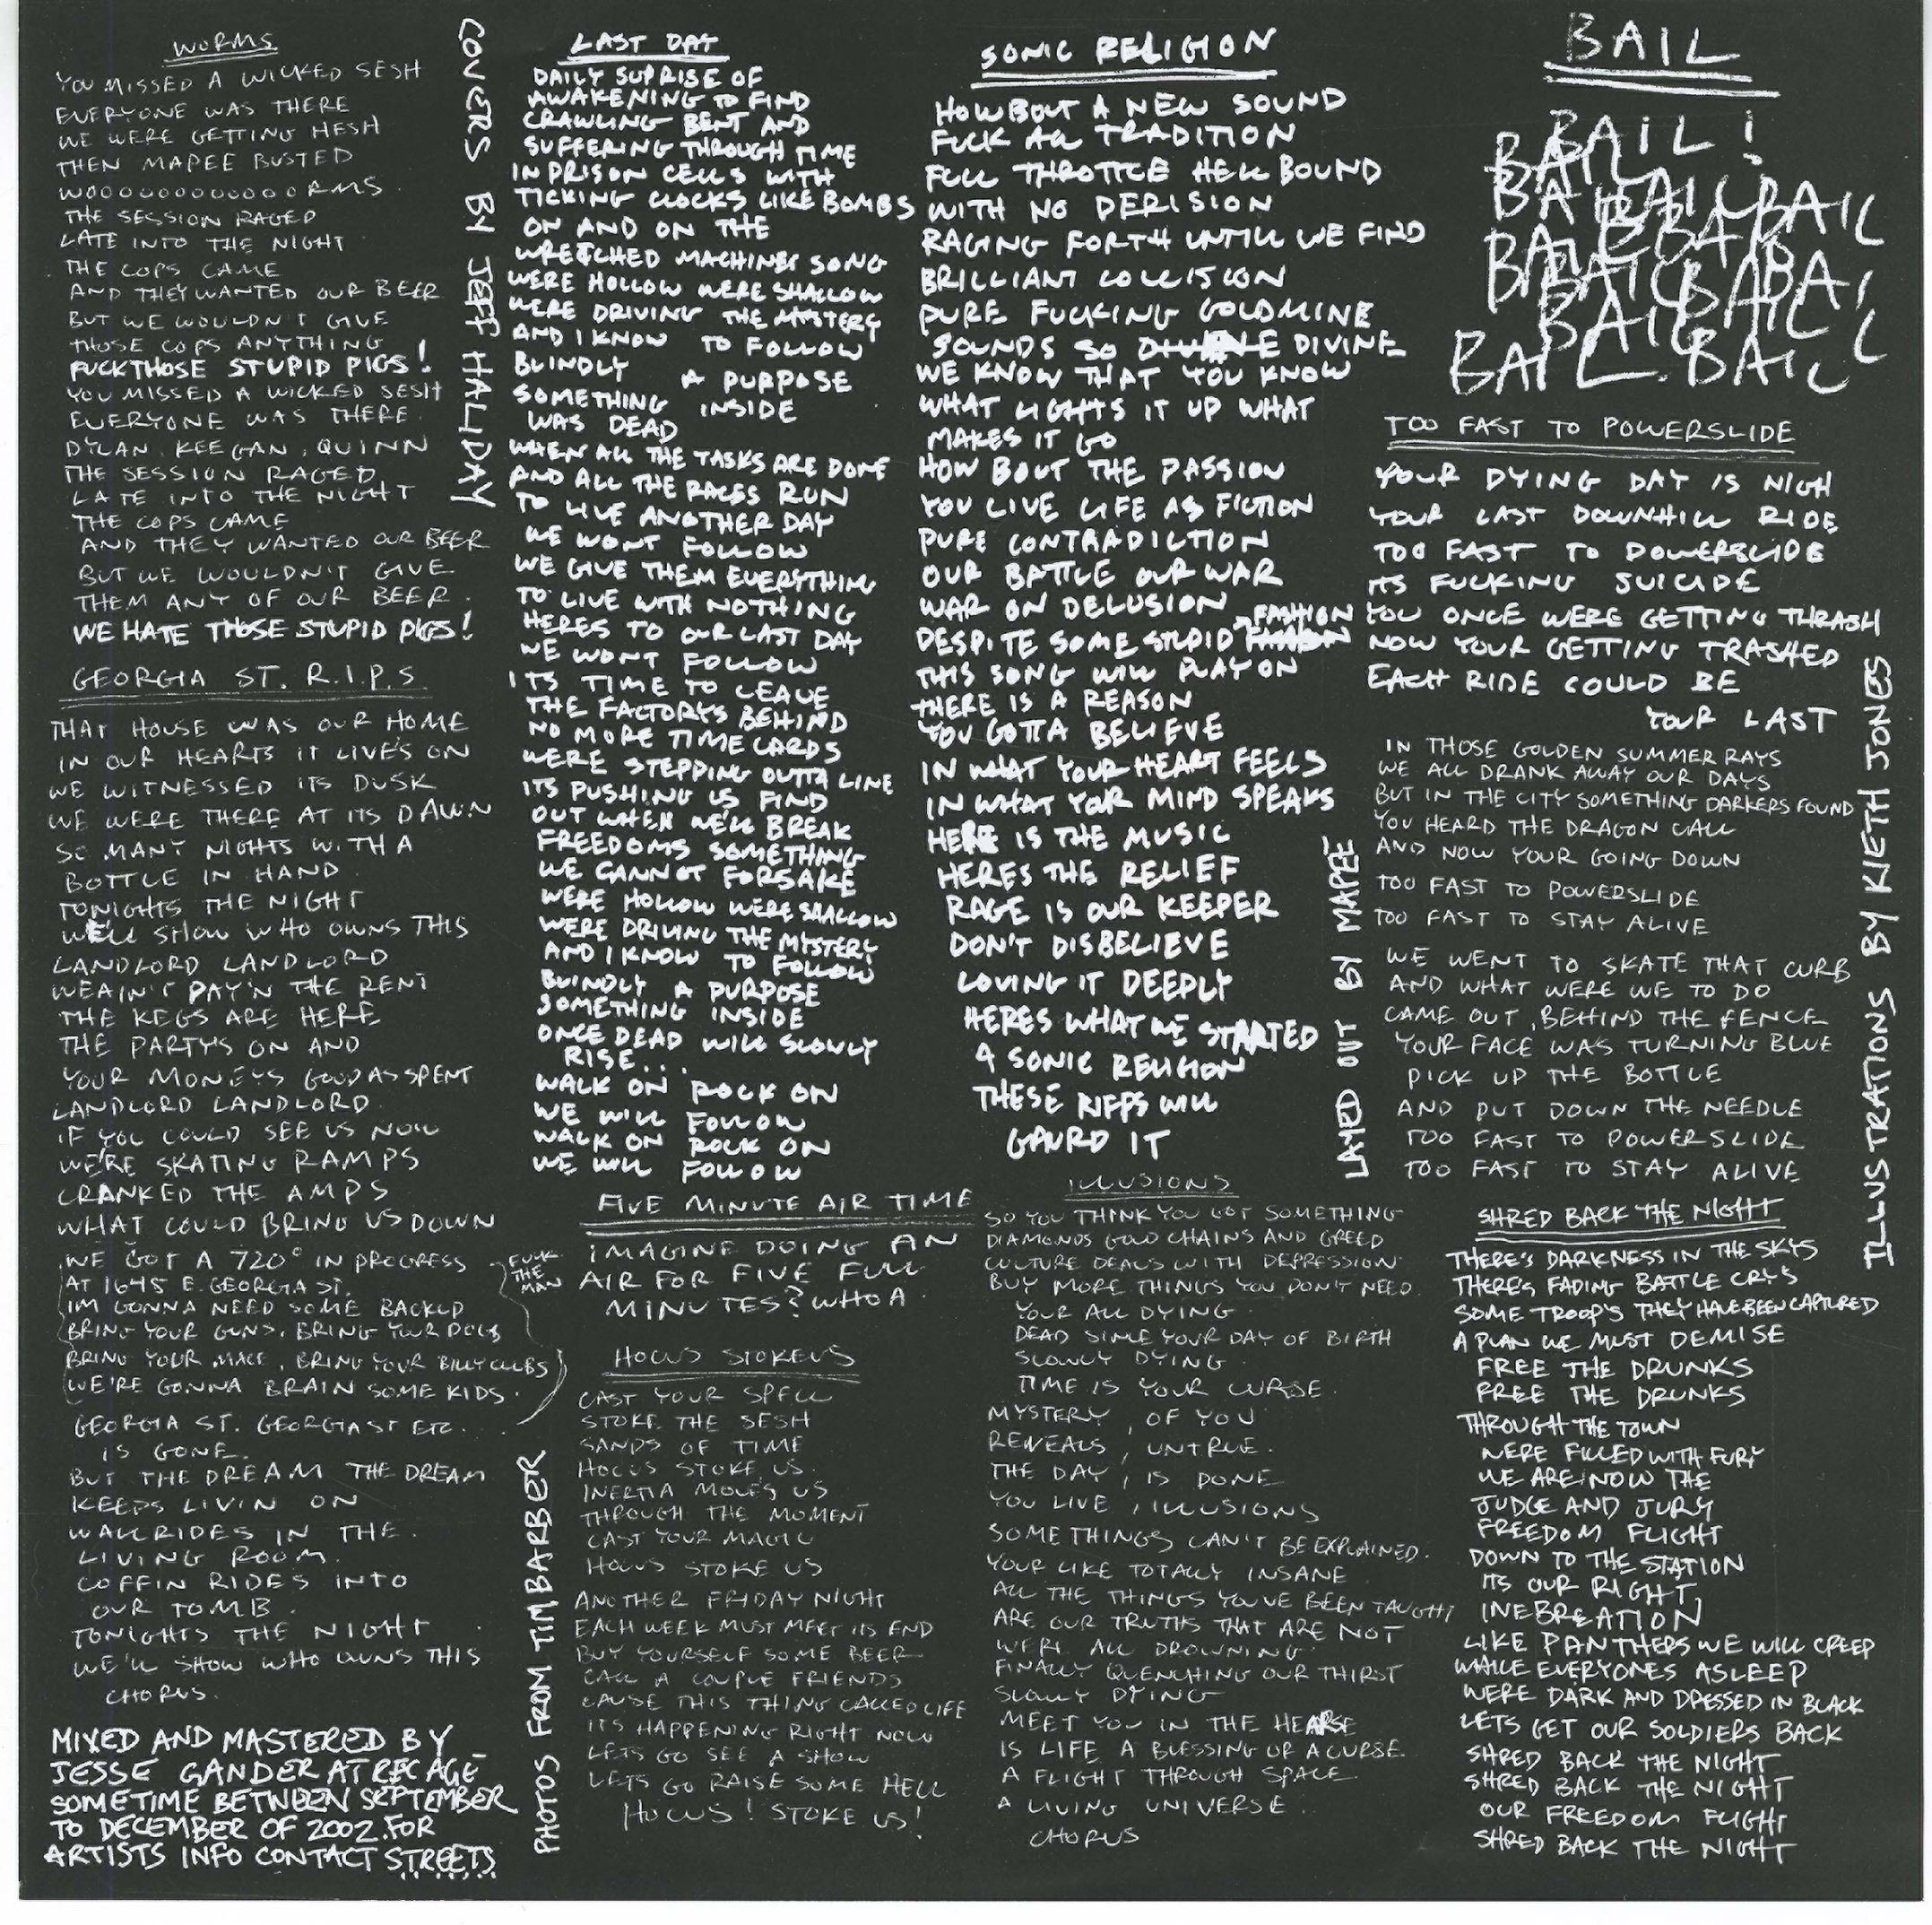 WORMS
YOU MISSED A WICKED SESH
EVERYONE WAS THERE
WE WERE GETTING HESH
THEN MAPEE BUSTED
WOOOOOOOOOOOORMS.
THE SESSION RAGED
LATE INTO THE NIGHT
THE COPS CAME
AND THEY WANTED OUR BEER
BUT WE WOULDN'T GIVE
THOSE COPS ANYTHING
FUCK THOSE STUPID PIGS!
YOU MISSED A WICKED SESH
EVERYONE WAS THERE.
DYLAN, KEEGAN, QUINN
THE SESSION RAGED
LATE INTO THE NIGHT
THE COPS CAME
AND THEY WANTED OUR BEER
BUT WE WOULDN'T GIVE
THEM ANY OF OUR BEER.
WE HATE THOSE STUPID PIGS!
GEORGIA ST. R.I.P.S
THAT HOUSE WAS OUR HOME
IN OUR HEARTS IT LIVE'S ON
WE WITNESSED ITS DUSK
WE WERE THERE AT ITS DAWN
SO MANY NIGHTS WITH A
BOTTLE IN HAND.
TONIGHTS THE NIGHT
WE'LL SHOW WHO OWNS THIS
LANDLORD LANDLORD
WE AIN'T PAY'N THE RENT
THE KEGS ARE HERE
THE PARTYS ON AND
YOUR MONEYS GOOD AS SPENT
LANDLORD LANDLORD
IF YOU COULD SEE US NOW
WE'RE SKATING RAMPS
CRANKED THE AMPS
WHAT COULD BRING US DOWN
WE GOT A 720° IN PROGRESS
AT 1645 E. GEORGIA ST.
IM GONNA NEED SOME BACKUP
BRING YOUR GUNS, BRING YOUR DOGS
BRING YOUR MACE, BRING YOUR BILLY CLUBS
WE'RE GONNA BRAIN SOME KIDS.
FUCK
THE
MAN
GEORGIA ST. GEORGIA ST ETC.
IS GONE.
BUT THE DREAM THE DREAM
KEEPS LIVIN ON
WALLRIDES IN THE.
LIVING ROOM.
COFFIN RIDES INTO
OUR TOMB.
TONIGHTS THE NIGHT
WE'LL SHOW WHO OWNS THIS
CHORUS.
MIXED AND MASTERED BY
JESSE GANDER AT REC AGE
SOMETIME BETWEEN SEPTEMBER
TO DECEMBER OF 2002. FOR
ARTISTS INFO CONTACT STREETS
COVERS BY JEFF HALIDAY
LAST DAY
DAILY SUPRISE OF
AWAKENING TO FIND
CRAWLING BENT AND
SUFFERING THROUGH TIME
IN PRISON CELLS WITH
TICKING CLOCKS LIKE BOMBS
ON AND ON THE
WRETCHED MACHINES SONG
WERE HOLLOW WERE SHALLOW
WERE DRIVING THE MYSTERY
AND I KNOW TO FOLLOW
BLINDLY A PURPOSE
SOMETHING INSIDE
WAS DEAD
WHEN ALL THE TASKS ARE DONE
AND ALL THE RACES RUN
TO LIVE ANOTHER DAY
WE WONT FOLLOW
WE GIVE THEM EVERYTHING
TO LIVE WITH NOTHING
HERES TO OUR LAST DAY
WE WONT FOLLOW
ITS TIME TO LEAVE
THE FACTORYS BEHIND
NO MORE TIME CARDS
WERE STEPPING OUTTA LINE
ITS PUSHING US FIND
OUT WHEN WE'LL BREAK
FREEDOMS SOMETHING
WE CANNOT FORSAKE
WERE HOLLOW WERE SHALLOW
WERE DRIVING THE MYSTERY
AND I KNOW TO FOLLOW
BLINDLY A PURPOSE
SOMETHING INSIDE
ONCE DEAD WILL SLOWLY
RISE...
WALK ON ROCK ON
WE WILL FOLLOW
WALK ON ROCK ON
WE WILL FOLLOW
FIVE MINUTE AIR TIME
IMAGINE DOING AN
AIR FOR FIVE FULL
MINUTES? WHOA.
HOCUS STOKEUS
CAST YOUR SPELL
STOKE THE SESH
SANDS OF TIME
HOCUS STOKE US.
INERTIA MOVES US
THROUGH THE MOMENT
CAST YOUR MAGIC
HOCUS STOKE US
ANOTHER FRIDAY NIGHT
EACH WEEK MUST MEET ITS END
BUY YOURSELF SOME BEER
CALL A COUPLE FRIENDS
CAUSE THIS THING CALLED LIFE
ITS HAPPENING RIGHT NOW
LETS GO SEE A SHOW
LETS GO RAISE SOME HELL
HOCUS! STOKE US!
PHOTOS FROM TIM BARBER
SONIC RELIGION
HOW BOUT A NEW SOUND
FUCK ALL TRADITION
FULL THROTTLE HELL BOUND
WITH NO DERISION
RAGING FORTH UNTILL WE FIND
BRILLIANT COLLISION
PURE FUCKING GOLDMINE
SOUNDS SO DIVINE
WE KNOW THAT YOU KNOW
WHAT LIGHTS IT UP WHAT
MAKES IT GO
HOW BOUT THE PASSION
YOU LIVE LIFE AS FICTION
PURE CONTRADICTION
OUR BATTLE OUR WAR
WAR ON DELUSION
DESPITE SOME STUPID FASHION
THIS SONG WILL PLAY ON
THERE IS A REASON
YOU GOTTA BELIEVE
IN WHAT YOUR HEART FEELS
IN WHAT YOUR MIND SPEAKS
HERE IS THE MUSIC
HERES THE RELIEF
RAGE IS OUR KEEPER
DON'T DISBELIEVE
LOVING IT DEEPLY
HERES WHAT WE STARTED
A SONIC RELIGION
THESE RIFFS WILL
GAURD IT
ILLUSIONS
SO YOU THINK YOU GOT SOMETHING
DIAMONDS GOLD CHAINS AND GREED
CULTURE DEALS WITH DEPRESSION
BUY MORE THINGS YOU DON'T NEED.
YOUR ALL DYING.
DEAD SINCE YOUR DAY OF BIRTH
SLOWLY DYING.
TIME IS YOUR CURSE.
MYSTERY, OF YOU
REVEALS, UNTRUE.
THE DAY, IS DONE
YOU LIVE, ILLUSIONS
SOME THINGS CAN'T BE EXPLAINED.
YOUR LIKE TOTALLY INSANE
ALL THE THINGS YOU'VE BEEN TAUGHT
ARE OUR TRUTHS THAT ARE NOT
WERE ALL DROWNING
FINALLY QUENCHING OUR THIRST
SLOWLY DYING
MEET YOU IN THE HEARSE
IS LIFE A BLESSING OR A CURSE.
A FLIGHT THROUGH SPACE.
A LIVING UNIVERSE.
CHORUS
LAYED OUT BY MAPEE
BAIL
BAIL!
BAIL
BAIL BAIL BAIL
BAIL BAIL BAIL
BAIL BAIL BAIL
BAIL BAIL
BAIL. BAIL
TOO FAST TO POWERSLIDE
YOUR DYING DAY IS NIGH
YOUR LAST DOWNHILL RIDE
TOO FAST TO POWERSLIDE
ITS FUCKING SUICIDE
YOU ONCE WERE GETTING THRASH
NOW YOUR GETTING TRASHED
EACH RIDE COULD BE
YOUR LAST
IN THOSE GOLDEN SUMMER RAYS
WE ALL DRANK AWAY OUR DAYS
BUT IN THE CITY SOMETHING DARKERS FOUND
YOU HEARD THE DRAGON CALL
AND NOW YOUR GOING DOWN
TOO FAST TO POWERSLIDE
TOO FAST TO STAY ALIVE
WE WENT TO SKATE THAT CURB
AND WHAT WERE WE TO DO
CAME OUT, BEHIND THE FENCE
YOUR FACE WAS TURNING BLUE
PICK UP THE BOTTLE
AND PUT DOWN THE NEEDLE
TOO FAST TO POWERSLIDE
TOO FAST TO STAY ALIVE
SHRED BACK THE NIGHT
THERE'S DARKNESS IN THE SKYS
THERE'S FADING BATTLE CRYS
SOME TROOP'S THEY HAVE BEEN CAPTURED
A PLAN WE MUST DEMISE
FREE THE DRUNKS
FREE THE DRUNKS
THROUGH THE TOWN
WERE FILLED WITH FURY
WE ARE NOW THE
JUDGE AND JURY
FREEDOM FLIGHT
DOWN TO THE STATION
ITS OUR RIGHT
INEBREATION
LIKE PANTHERS WE WILL CREEP
WHILE EVERYONES ASLEEP
WERE DARK AND DRESSED IN BLACK
LETS GET OUR SOLDIERS BACK
SHRED BACK THE NIGHT
SHRED BACK THE NIGHT
OUR FREEDOM FLIGHT
SHRED BACK THE NIGHT
ILLUSTRATIONS BY KIETH JONES